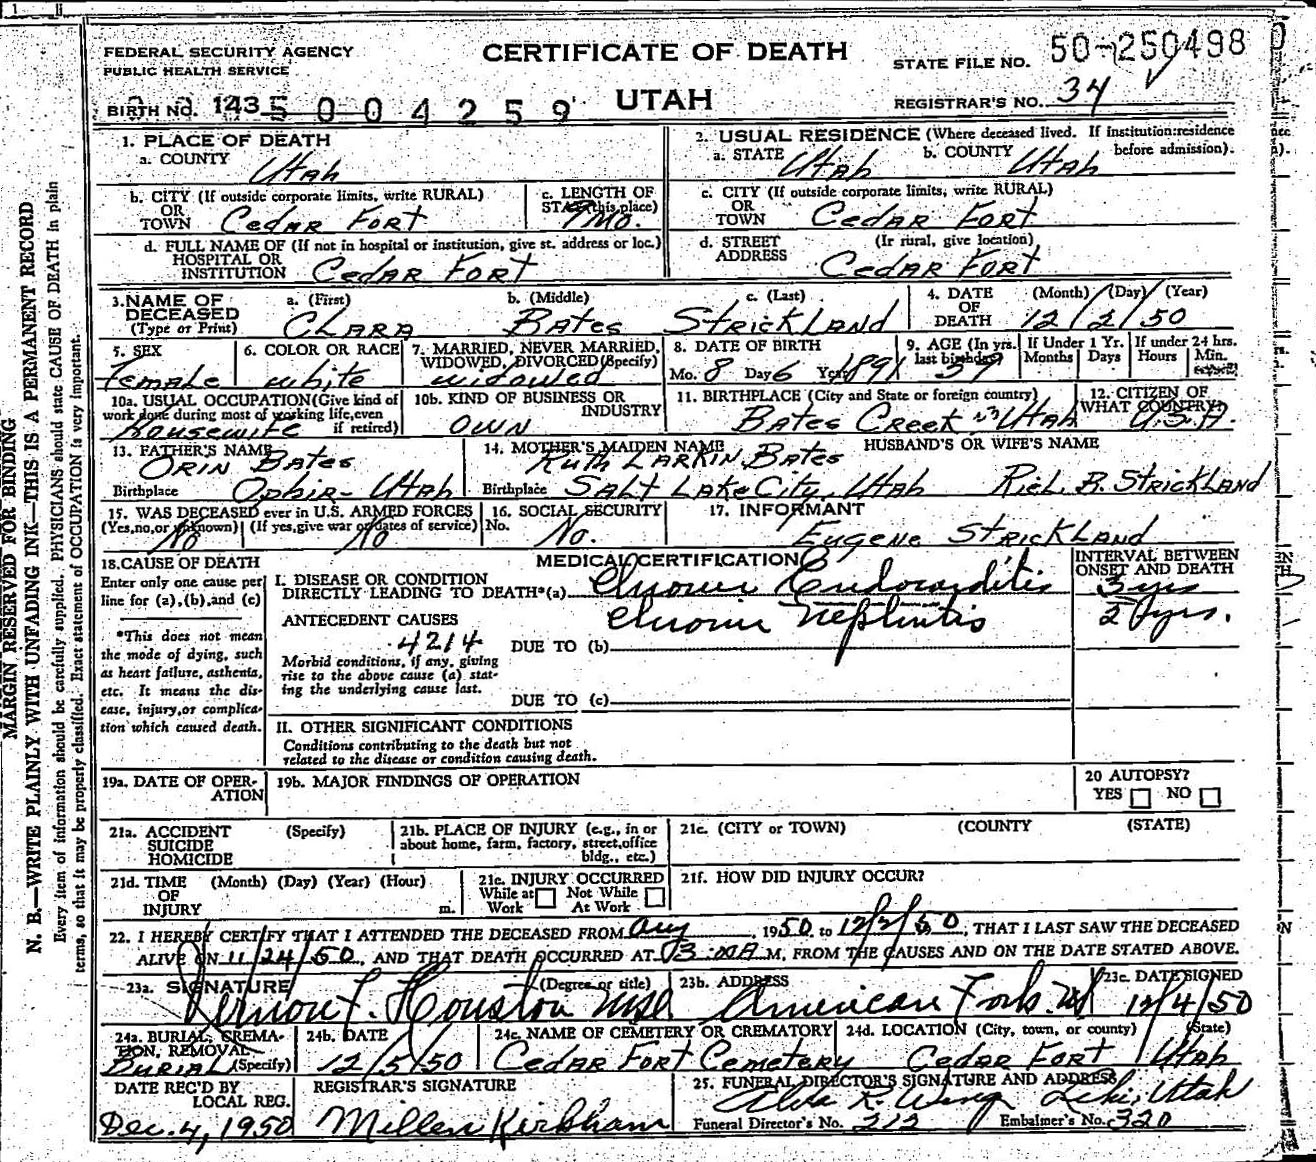 FEDERAL SECURITY AGENCY
PUBLIC HEALTH SERVICE
CERTIFICATE OF DEATH
UTAH
STATE FILE NO. 50-250498
BIRTH NO. 143 5004259
REGISTRAR'S NO. 34
1. PLACE OF DEATH
a. COUNTY Utah
2. USUAL RESIDENCE (Where deceased lived. If institution:residence before admission).
a. STATE Utah b. COUNTY Utah
b. CITY (If outside corporate limits, write RURAL) OR TOWN Cedar Fort
c. LENGTH OF STAY (this place) mo.
c. CITY (If outside corporate limits, write RURAL) OR TOWN Cedar Fort
d. FULL NAME OF (If not in hospital or institution, give st. address or loc.) HOSPITAL OR INSTITUTION Cedar Fort
d. STREET ADDRESS (Ir rural, give location) Cedar Fort
3. NAME OF DECEASED (Type or Print)
a. (First) Clara b. (Middle) Bates c. (Last) Strickland
4. DATE OF DEATH (Month) (Day) (Year) 12/2/50
5. SEX Female
6. COLOR OR RACE White
7. MARRIED, NEVER MARRIED, WIDOWED, DIVORCED (Specify) widowed
8. DATE OF BIRTH Mo. 8 Day 6 Year 1891
9. AGE (In yrs. last birthday) 59
If Under 1 Yr. Months Days
If under 24 hrs. Hours Min.
10a. USUAL OCCUPATION (Give kind of work done during most of working life, even if retired) Housewife
10b. KIND OF BUSINESS OR INDUSTRY own
11. BIRTHPLACE (City and State or foreign country) Bates Creek Utah
12. CITIZEN OF WHAT COUNTRY? U.S.A.
13. FATHER'S NAME Orin Bates
Birthplace Ophir- Utah
14. MOTHER'S MAIDEN NAME Ruth Larkin Bates
Birthplace Salt Lake City, Utah
HUSBAND'S OR WIFE'S NAME
Rich. B. Strickland
15. WAS DECEASED ever in U.S. ARMED FORCES (Yes,no,or unknown) (If yes,give war or dates of service) No No
16. SOCIAL SECURITY No. No.
17. INFORMANT Eugene Strickland
18. CAUSE OF DEATH
Enter only one cause per line for (a),(b),and (c)
*This does not mean the mode of dying, such as heart failure, asthenia, etc. It means the disease, injury, or complication which caused death.
MEDICAL CERTIFICATION
INTERVAL BETWEEN ONSET AND DEATH
I. DISEASE OR CONDITION DIRECTLY LEADING TO DEATH*(a) Chronic Endocarditis 3 yrs
ANTECEDENT CAUSES Chronic Nephritis 2 yrs.
4214
DUE TO (b)
Morbid conditions, if any, giving rise to the above cause (a) stating the underlying cause last.
DUE TO (c)
II. OTHER SIGNIFICANT CONDITIONS
Conditions contributing to the death but not related to the disease or condition causing death.
19a. DATE OF OPERATION
19b. MAJOR FINDINGS OF OPERATION
20 AUTOPSY?
YES NO
21a. ACCIDENT SUICIDE HOMICIDE (Specify)
21b. PLACE OF INJURY (e.g., in or about home, farm, factory, street,office bldg., etc.)
21c. (CITY or TOWN) (COUNTY (STATE)
21d. TIME OF INJURY (Month) (Day) (Year) (Hour) m.
21e. INJURY OCCURRED
While at Work Not While At Work
21f. HOW DID INJURY OCCUR?
22. I HEREBY CERTIFY THAT I ATTENDED THE DECEASED FROM Aug, 1950 to 12/2/50, THAT I LAST SAW THE DECEASED
ALIVE ON 11/24/50, AND THAT DEATH OCCURRED AT 3:00A M, FROM THE CAUSES AND ON THE DATE STATED ABOVE.
23a. SIGNATURE (Degree or title) Vernon F. Houston M.D.
23b. ADDRESS American Fork. Ut
23c. DATE SIGNED 12/4/50
24a. BURIAL, CREMATION, REMOVAL (Specify) Burial
24b. DATE 12/5/50
24c. NAME OF CEMETERY OR CREMATORY Cedar Fort Cemetery
24d. LOCATION (City, town, or county) (State) Cedar Fort Utah
DATE REC'D BY LOCAL REG. Dec. 4, 1950
REGISTRAR'S SIGNATURE Millen Kirkham
25. FUNERAL DIRECTOR'S SIGNATURE AND ADDRESS
Alva R. Wing Lehi, Utah
Funeral Director's No. 212 Embalmer's No. 320
MARGIN RESERVED FOR BINDING
N. B.—WRITE PLAINLY WITH UNFADING INK—THIS IS A PERMANENT RECORD
Every item of information should be carefully supplied. PHYSICIANS should state CAUSE OF DEATH in plain
terms, so that it may be properly classified. Exact statement of OCCUPATION is very important.